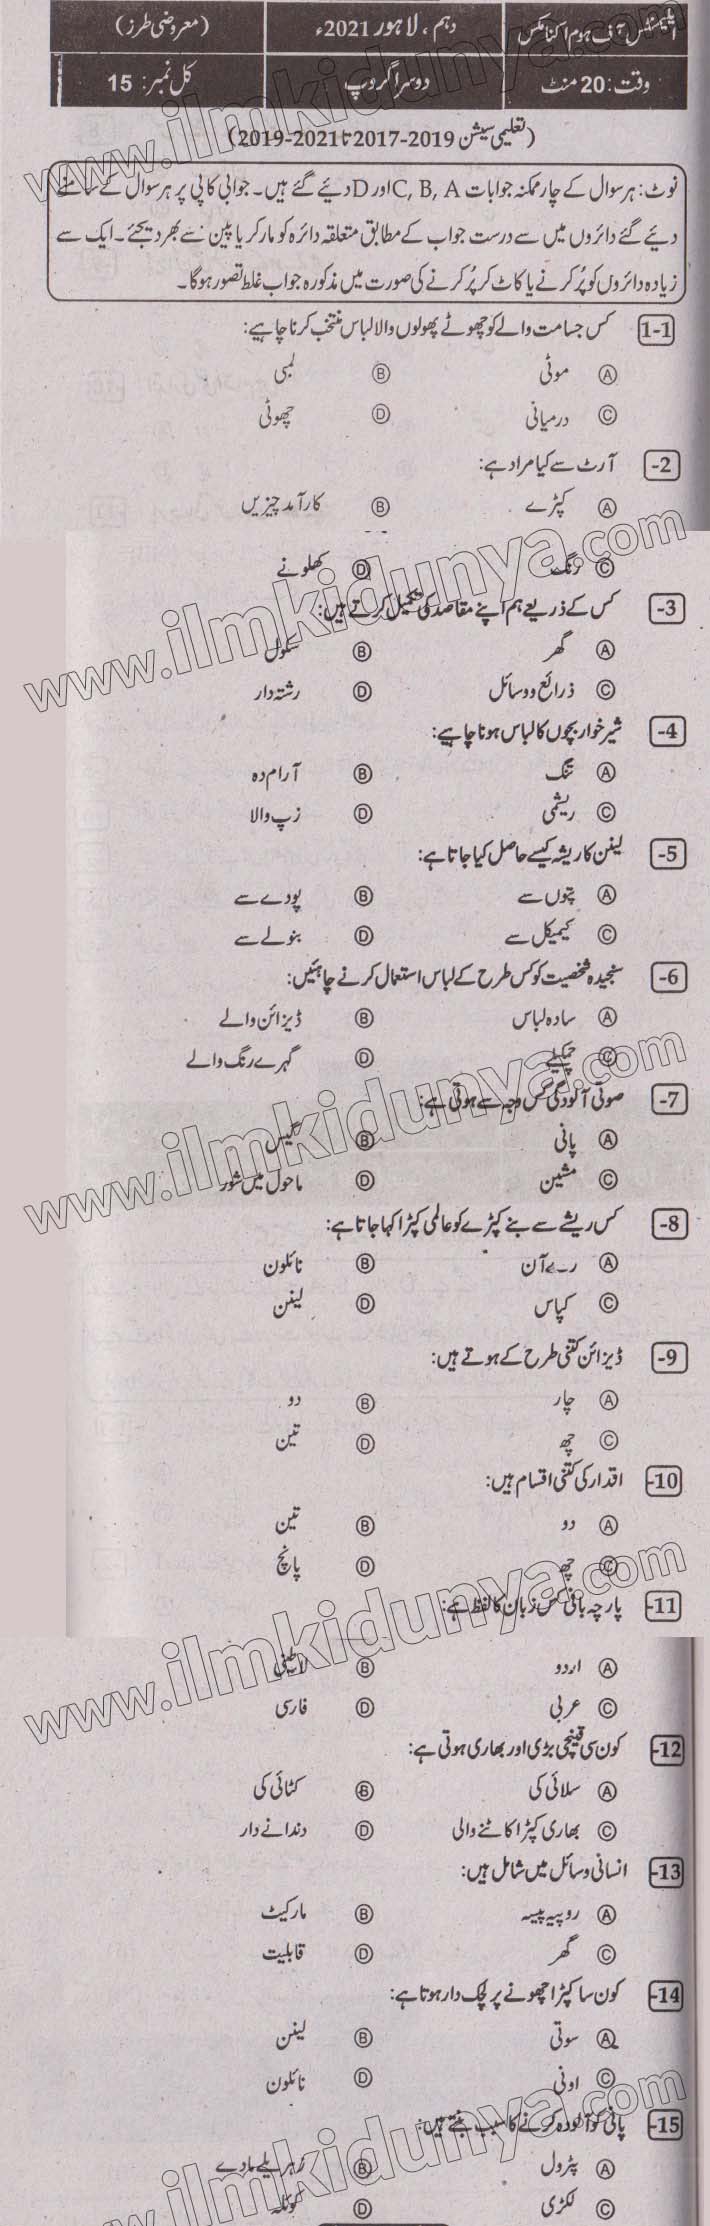 ایلیمنٹس آف ہوم اکنامکس دہم، لاہور 2021ء (معروضی طرز)
وقت: 20 منٹ دوسرا گروپ کل نمبر: 15
(تعلیمی سیشن 2019-2017 تا 2021-2019)
نوٹ: ہر سوال کے چار ممکنہ جوابات C, B, A اور D دیئے گئے ہیں۔ جوابی کاپی پر ہر سوال کے سامنے
دیئے گئے دائروں میں سے درست جواب کے مطابق متعلقہ دائرہ کو مارکر یا پین سے بھر دیجئے۔ ایک سے
زیادہ دائروں کو پُر کرنے یا کاٹ کر پُر کرنے کی صورت میں مذکورہ جواب غلط تصور ہوگا۔
1-1 کس جسامت والے کو چھوٹے پھولوں والا لباس منتخب کرنا چاہیے:
Ⓐ موٹی Ⓑ لمبی
Ⓒ درمیانی Ⓓ چھوٹی
-2 آرٹ سے کیا مراد ہے:
Ⓐ کپڑے Ⓑ کارآمد چیزیں
Ⓒ رنگ Ⓓ کھلونے
-3 کس کے ذریعے ہم اپنے مقاصد کی تکمیل کرتے ہیں:
Ⓐ گھر Ⓑ سکول
Ⓒ ذرائع و وسائل Ⓓ رشتہ دار
-4 شیر خوار بچوں کا لباس ہونا چاہیے:
Ⓐ تنگ Ⓑ آرام دہ
Ⓒ ریشمی Ⓓ زپ والا
-5 لینن کا ریشہ کیسے حاصل کیا جاتا ہے:
Ⓐ پتوں سے Ⓑ پودے سے
Ⓒ کیمیکل سے Ⓓ بنولے سے
-6 سنجیدہ شخصیت کو کس طرح کے لباس استعمال کرنے چاہئیں:
Ⓐ سادہ لباس Ⓑ ڈیزائن والے
Ⓒ چمکیلے Ⓓ گہرے رنگ والے
-7 صوتی آلودگی کس وجہ سے ہوتی ہے:
Ⓐ پانی Ⓑ گیس
Ⓒ مشین Ⓓ ماحول میں شور
-8 کس ریشے سے بنے کپڑے کو عالمی کپڑا کہا جاتا ہے:
Ⓐ رے آن Ⓑ نائلون
Ⓒ کپاس Ⓓ لینن
-9 ڈیزائن کتنی طرح کے ہوتے ہیں:
Ⓐ چار Ⓑ دو
Ⓒ چھ Ⓓ تین
-10 اقدار کی کتنی اقسام ہیں:
Ⓐ دو Ⓑ تین
Ⓒ چھ Ⓓ پانچ
-11 پارچہ بافی کس زبان کا لفظ ہے:
Ⓐ اردو Ⓑ لاطینی
Ⓒ عربی Ⓓ فارسی
-12 کون سی قینچی بڑی اور بھاری ہوتی ہے:
Ⓐ سلائی کی Ⓑ کٹائی کی
Ⓒ بھاری کپڑا کاٹنے والی Ⓓ دندانے دار
-13 انسانی وسائل میں شامل ہیں:
Ⓐ روپیہ پیسہ Ⓑ مارکیٹ
Ⓒ گھر Ⓓ قابلیت
-14 کون سا کپڑا چھونے پر لچک دار ہوتا ہے:
Ⓐ سوتی Ⓑ لینن
Ⓒ اونی Ⓓ نائلون
-15 پانی کو آلودہ کرنے کا سبب بنتے ہیں:
Ⓐ پٹرول Ⓑ زہریلے مادے
Ⓒ لکڑی Ⓓ کوئلہ
www.ilmkidunya.com
www.ilmkidunya.com
www.ilmkidunya.com
www.ilmkidunya.com
www.ilmkidunya.com